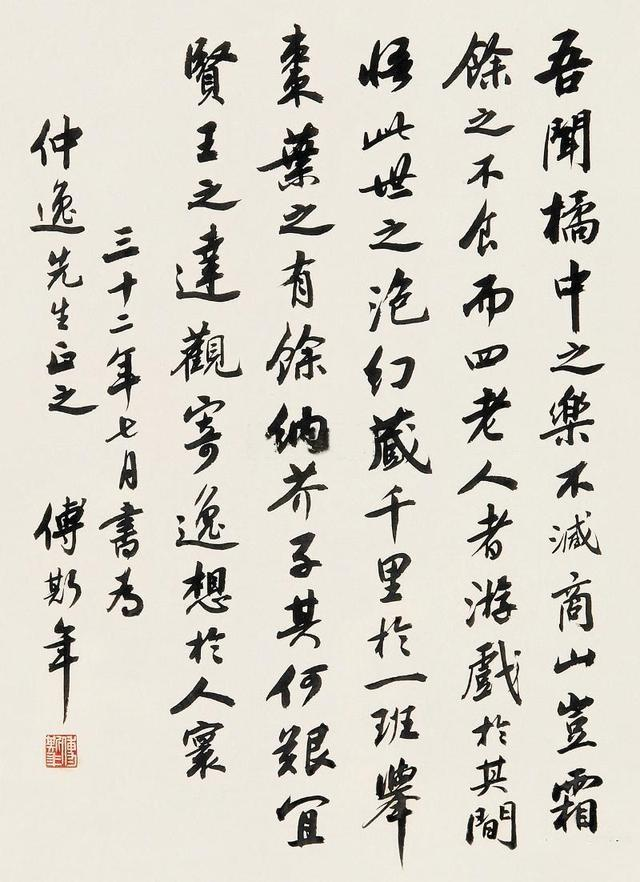 吾聞橘中之樂不減商山豈霜
餘之不食而四老人者游戲於其間
悟此世之泡幻藏千里於一班舉
棗葉之有餘納芥子其何艱宜
賢王之達觀寄逸想於人寰
三十二年七月書為
仲逸先生正之
傅斯年
傅斯年